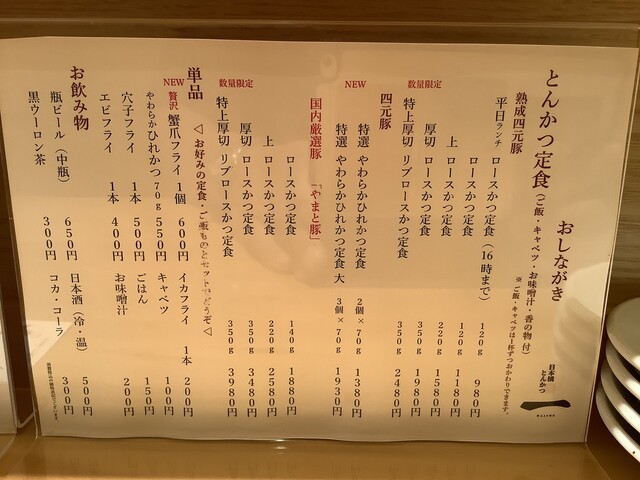 おしながき
とんかつ定食(ご飯・キャベツ・お味噌汁・香の物 付)
※ご飯・キャベツは1杯ずつおかわりできます。
日本橋
とんかつ
一
熟成四元豚
平日ランチ ロースかつ定食(16時まで) 120g 980円
ロースかつ定食 120g 1180円
上 ロースかつ定食 220g 1580円
厚切 ロースかつ定食 350g 1980円
数量限定
特上厚切 リブロースかつ定食 350g 2480円
四元豚
特選 やわらかひれかつ定食 2個×70g 1380円
NEW
特選 やわらかひれかつ定食 大 3個×70g 1930円
国内厳選豚 「やまと豚」
ロースかつ定食 140g 1880円
上 ロースかつ定食 220g 2580円
厚切 ロースかつ定食 350g 3480円
数量限定
特上厚切 リブロースかつ定食 350g 3980円
単品
◁お好みの定食・ご飯ものとセットでどうぞ◁
NEW
贅沢 蟹爪フライ 1個 600円
イカフライ 1本 200円
やわらかひれかつ 70g 550円
キャベツ 100円
穴子フライ 1本 500円
ごはん 150円
エビフライ 1本 400円
お味噌汁 200円
お飲み物
瓶ビール(中瓶) 650円
日本酒(冷・温) 500円
黒ウーロン茶 300円
コカ・コーラ 300円